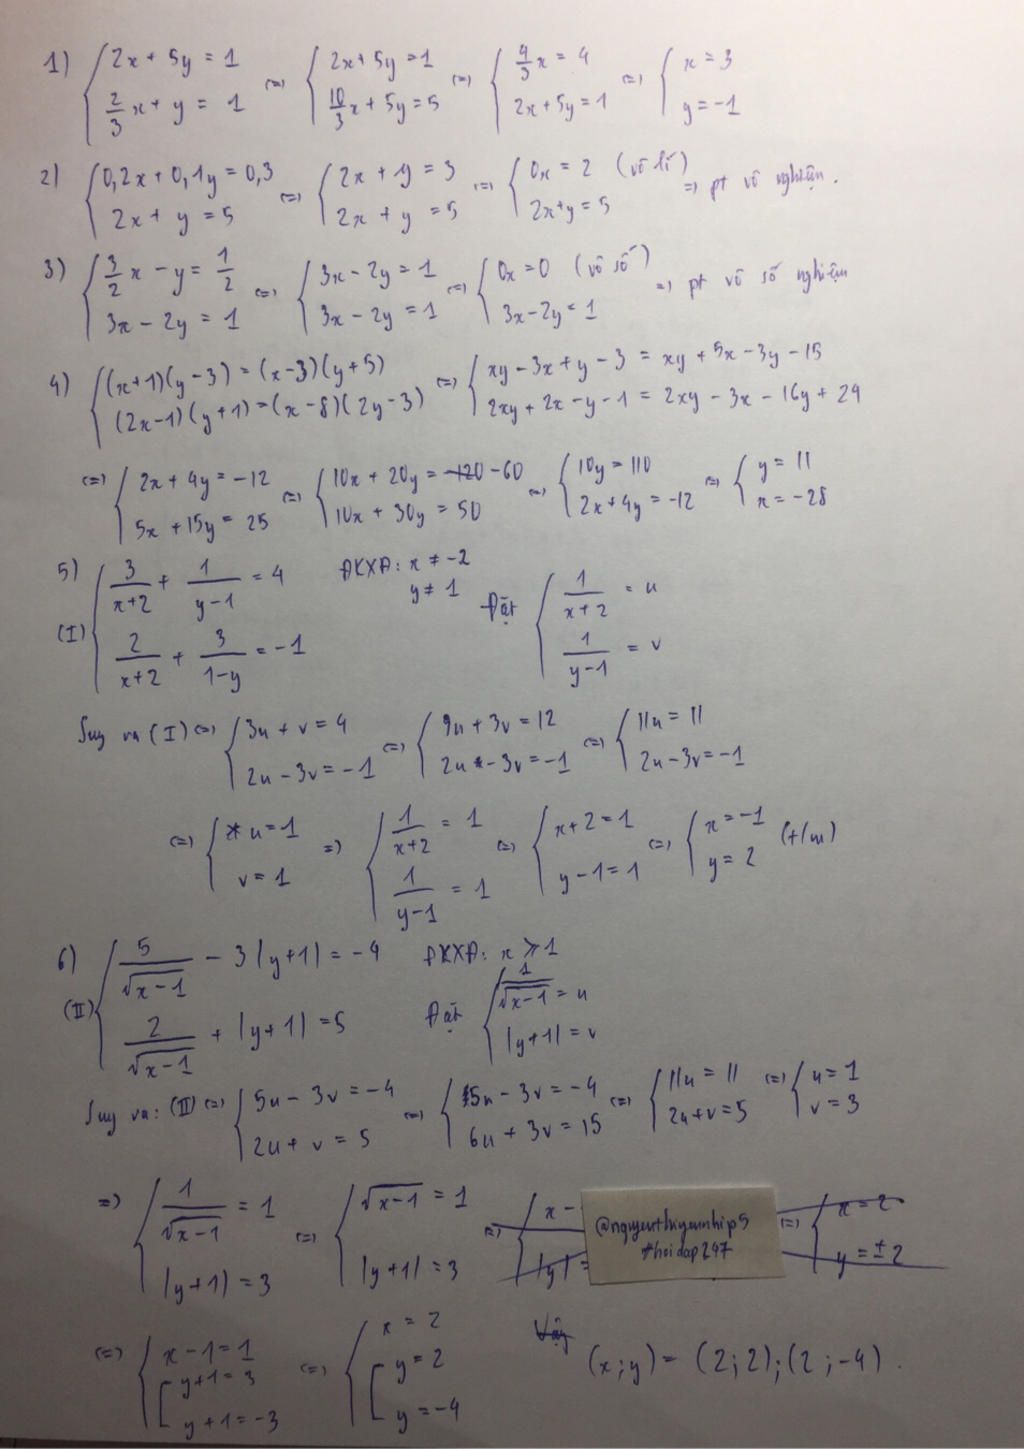 1) { 2x + 5y = 1 ; 2/3 x + y = 1 (=) { 2x + 5y = 1 ; 10/3 x + 5y = 5 (=) { 4/3 x = 4 ; 2x + 5y = 1 (=) { x = 3 ; y = -1
2) { 0,2x + 0,1y = 0,3 ; 2x + y = 5 (=) { 2x + y = 3 ; 2x + y = 5 (=) { 0x = 2 (vô lí) ; 2x + y = 5 =) pt vô nghiệm.
3) { 3/2 x - y = 1/2 ; 3x - 2y = 1 (=) { 3x - 2y = 1 ; 3x - 2y = 1 (=) { 0x = 0 (vô số) ; 3x - 2y = 1 =) pt vô số nghiệm
4) { (x+1)(y-3) = (x-3)(y+5) ; (2x-1)(y+1) = (x-8)(2y-3) (=) { xy - 3x + y - 3 = xy + 5x - 3y - 15 ; 2xy + 2x - y - 1 = 2xy - 3x - 16y + 24
(=) { 2x + 4y = -12 ; 5x + 15y = 25 (=) { 10x + 20y = -120 -60 ; 10x + 30y = 50 (=) { 10y = 110 ; 2x + 4y = -12 (=) { y = 11 ; x = -28
5) (I) { 3/(x+2) + 1/(y-1) = 4 ; 2/(x+2) + 3/(1-y) = -1 ĐKXĐ: x ≠ -2 y ≠ 1 Đặt { 1/(x+2) = u ; 1/(y-1) = v
Suy ra (I) (=) { 3u + v = 4 ; 2u - 3v = -1 (=) { 9u + 3v = 12 ; 2u - 3v = -1 (=) { 11u = 11 ; 2u - 3v = -1
(=) { u = 1 ; v = 1 =) { 1/(x+2) = 1 ; 1/(y-1) = 1 (=) { x + 2 = 1 ; y - 1 = 1 (=) { x = -1 ; y = 2 (t/m)
6) (II) { 5/√(x-1) - 3|y+1| = -4 ; 2/√(x-1) + |y+1| = 5 ĐKXĐ: x ≥ 1 Đặt { 1/√(x-1) = u ; |y+1| = v
Suy ra: (II) (=) { 5u - 3v = -4 ; 2u + v = 5 (=) { 5u - 3v = -4 ; 6u + 3v = 15 (=) { 11u = 11 ; 2u + v = 5 (=) { u = 1 ; v = 3
=) { 1/√(x-1) = 1 ; |y+1| = 3 (=) { √(x-1) = 1 ; |y+1| = 3 (=) { x - ; |y| = (=) { x = 2 ; y = ±2
@nguyenthiyennhip5
#hoidap247
(=) { x - 1 = 1 ; [ y + 1 = 3 ; y + 1 = -3 (=) { x = 2 ; [ y = 2 ; y = -4 Vậy (x; y) = (2; 2); (2; -4).